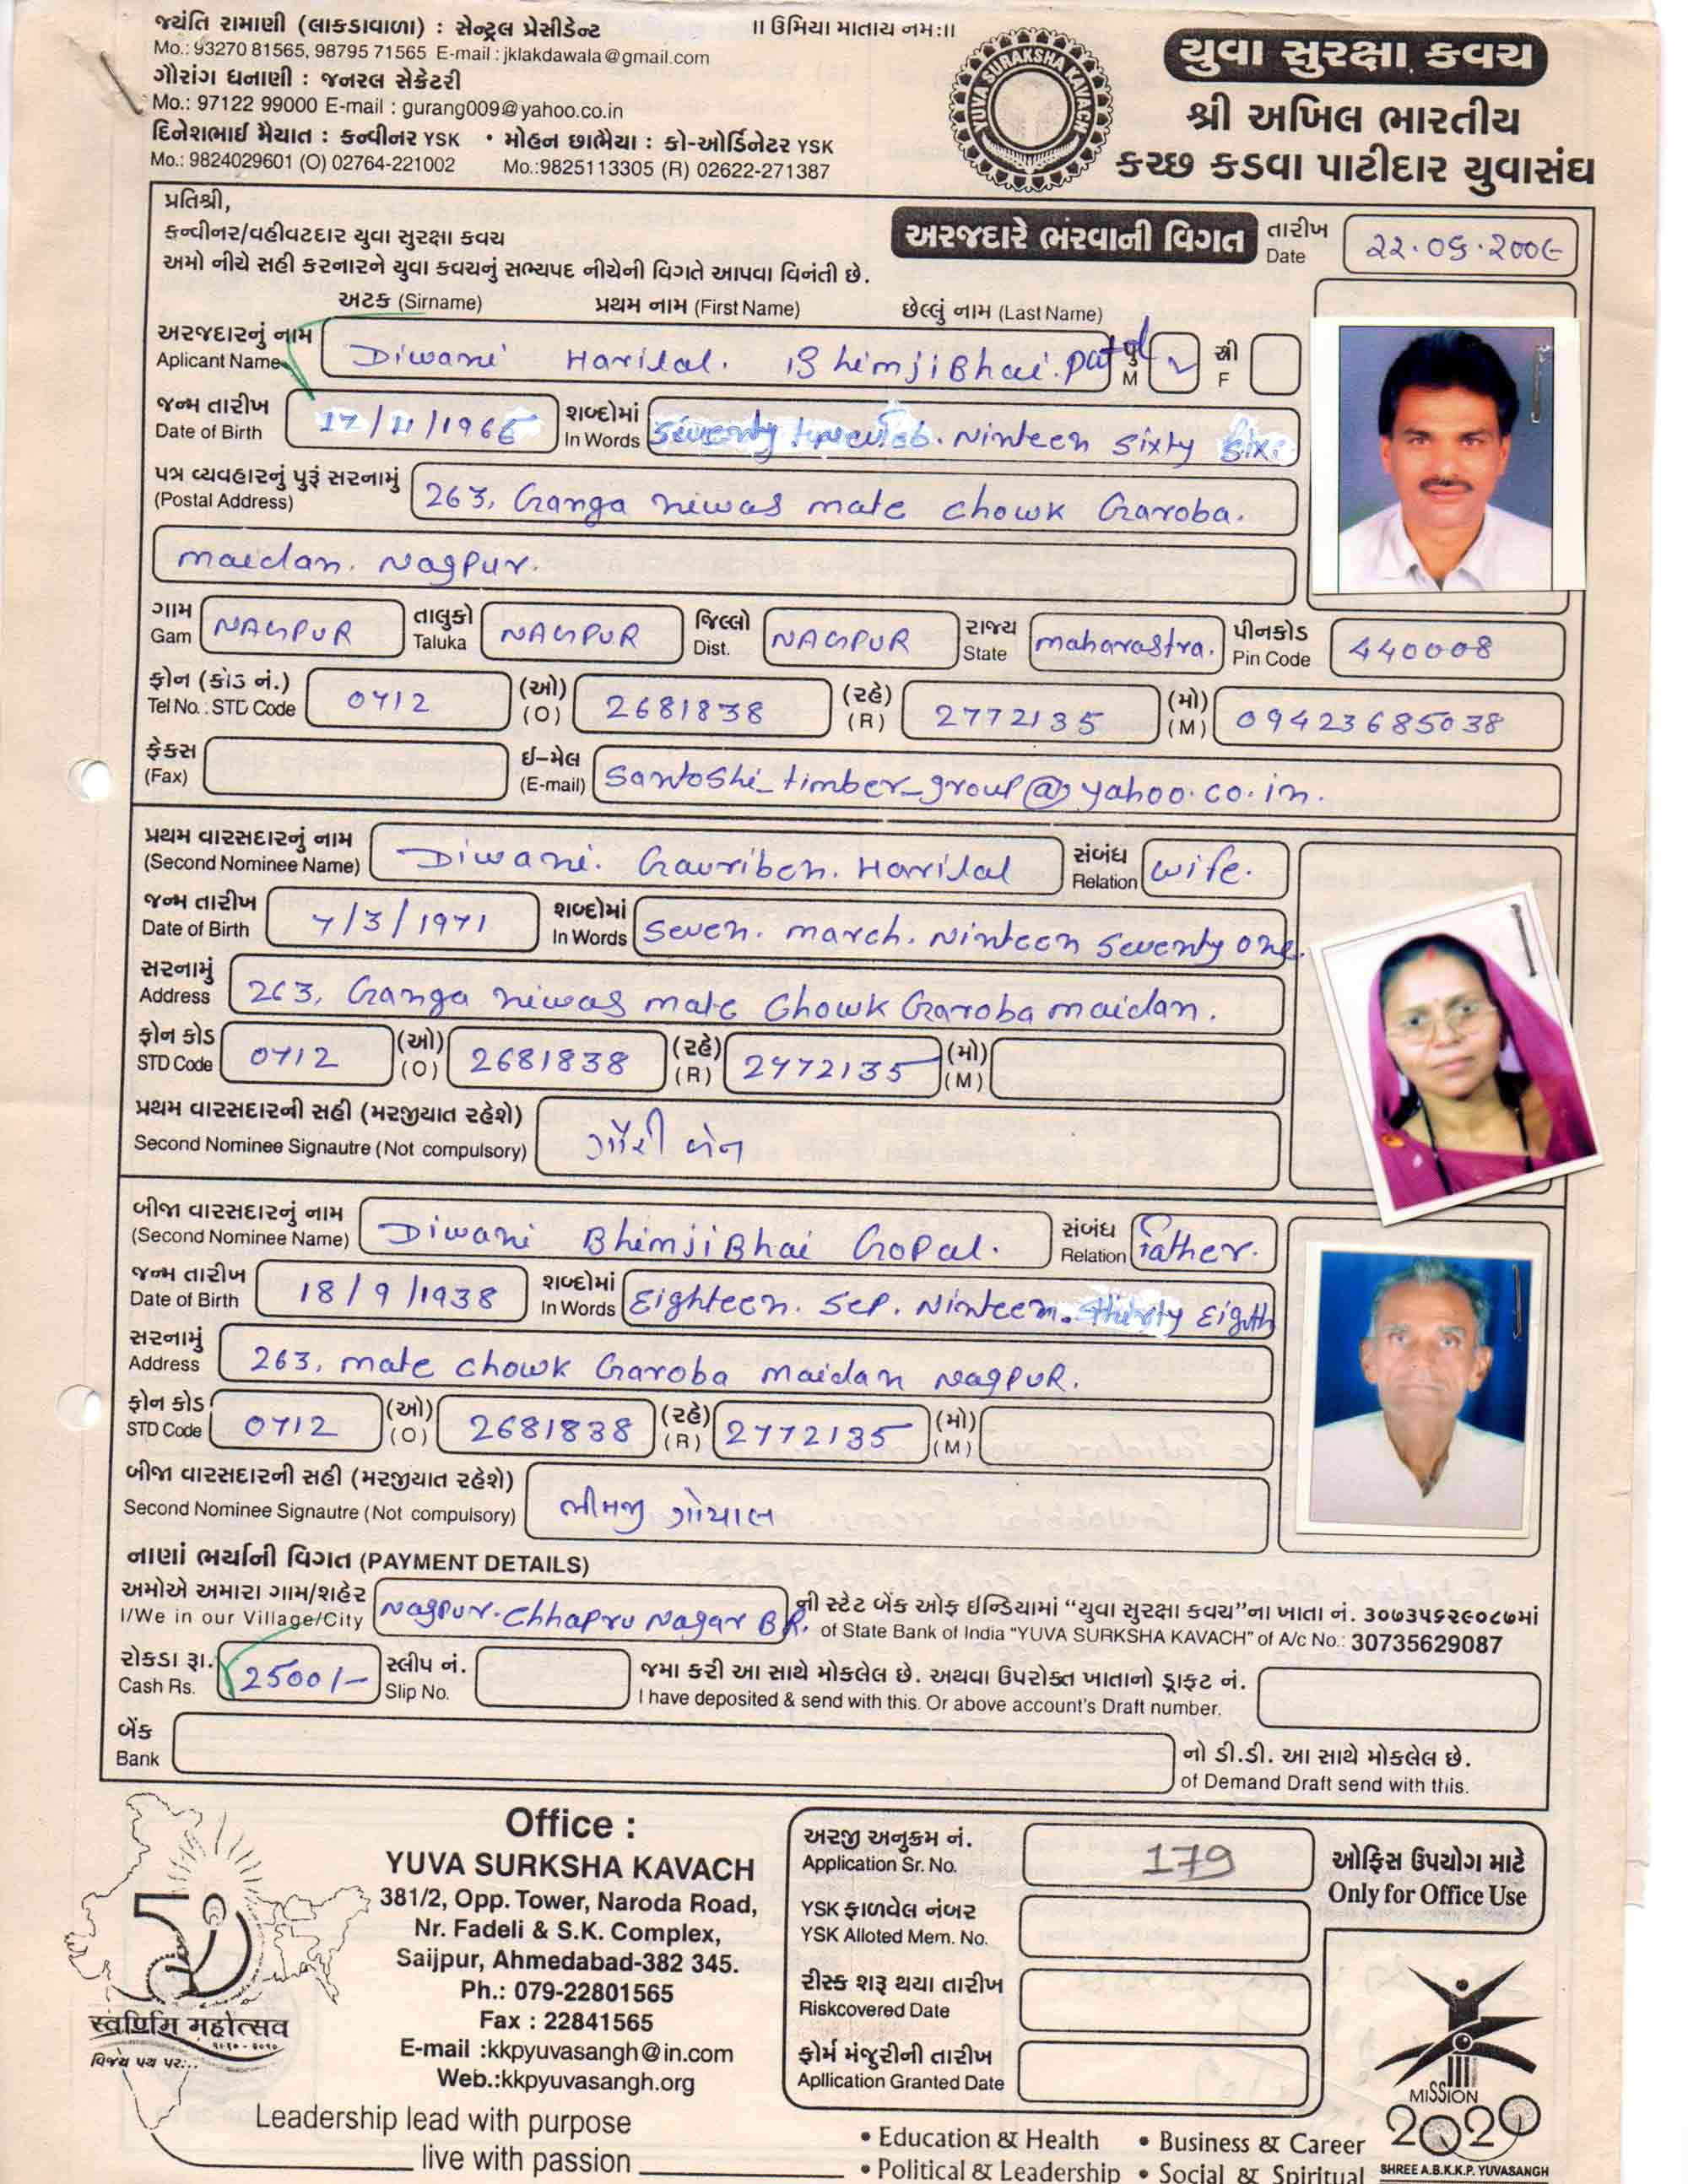 જયંતિ રામાણી (લાકડાવાળા) : સેન્ટ્રલ પ્રેસીડેન્ટ
Mo.: 93270 81565, 98795 71565 E-mail : jklakdawala@gmail.com
ગૌરાંગ ધનાણી : જનરલ સેક્રેટરી
Mo.: 97122 99000 E-mail : gurang009@yahoo.co.in
દિનેશભાઈ મૈયાત : કન્વીનર YSK • મોહન છાભૈયા : કો-ઓર્ડિનેટર YSK
Mo.: 9824029601 (O) 02764-221002 Mo.:9825113305 (R) 02622-271387
॥ ઉમિયા માતાય નમઃ॥
YUVA SURAKSHA KAVACH
યુવા સુરક્ષા કવચ
શ્રી અખિલ ભારતીય
કચ્છ કડવા પાટીદાર યુવાસંઘ
પ્રતિશ્રી,
કન્વીનર/વહીવટદાર યુવા સુરક્ષા કવચ
અમો નીચે સહી કરનારને યુવા કવચનું સભ્યપદ નીચેની વિગતે આપવા વિનંતી છે.
અરજદારે ભરવાની વિગત
તારીખ Date ૨૨.૦૬.૨૦૦૯
અટક (Sirname) પ્રથમ નામ (First Name) છેલ્લું નામ (Last Name)
અરજદારનું નામ Aplicant Name Diwani Harilal. BhimjiBhai. patel પુ M ✓ સ્ત્રી F
જન્મ તારીખ Date of Birth 17/11/1966 શબ્દોમાં In Words Ninteen Sixty Six
પત્ર વ્યવહારનું પુરૂં સરનામું (Postal Address) 263, Ganga niwas mate chowk Garoba.
maidan. Nagpur.
ગામ Gam NAGPUR તાલુકો Taluka NAGPUR જિલ્લો Dist. NAGPUR રાજ્ય State maharastra. પીનકોડ Pin Code 440008
ફોન (કોડ નં.) Tel No. : STD Code 0712 (ઓ) (O) 2681838 (રહે) (R) 2772135 (મો) (M) 09423685038
ફેકસ (Fax) ઈ-મેલ (E-mail) Santoshi_timber_group@yahoo.co.in.
પ્રથમ વારસદારનું નામ (Second Nominee Name) Diwani. Gauriben. Harilal સંબંધ Relation wife.
જન્મ તારીખ Date of Birth 7/3/1971 શબ્દોમાં In Words Seven. march. Ninteen Seventy one.
સરનામું Address 263, Ganga niwas mate Chowk Garoba maidan.
ફોન કોડ STD Code 0712 (ઓ) (O) 2681838 (રહે) (R) 2772135 (મો) (M)
પ્રથમ વારસદારની સહી (મરજીયાત રહેશે)
Second Nominee Signautre (Not compulsory) ગૌરી બેન
બીજા વારસદારનું નામ (Second Nominee Name) Diwani BhimjiBhai Gopal. સંબંધ Relation Father.
જન્મ તારીખ Date of Birth 18/9/1938 શબ્દોમાં In Words Eighteen. Sep. Ninteen. thirty Eigth
સરનામું Address 263, mate chowk Garoba maidan NagpuR.
ફોન કોડ STD Code 0712 (ઓ) (O) 2681838 (રહે) (R) 2772135 (મો) (M)
બીજા વારસદારની સહી (મરજીયાત રહેશે)
Second Nominee Signautre (Not compulsory) ભીમજી ગોપાલ
નાણાં ભર્યાની વિગત (PAYMENT DETAILS)
અમોએ અમારા ગામ/શહેર Nagpur. Chhapru Nagar BR. ની સ્ટેટ બેંક ઓફ ઈન્ડિયામાં “યુવા સુરક્ષા કવચ”ના ખાતા નં. ૩૦૭૩૫૬૨૯૦૮૭માં
I/We in our Village/City of State Bank of India "YUVA SURKSHA KAVACH" of A/c No.: 30735629087
રોકડા રૂા. Cash Rs. 2500/- સ્લીપ નં. Slip No. જમા કરી આ સાથે મોકલેલ છે. અથવા ઉપરોક્ત ખાતાનો ડ્રાફ્ટ નં.
I have deposited & send with this. Or above account's Draft number.
બેંક Bank નો ડી.ડી. આ સાથે મોકલેલ છે.
of Demand Draft send with this.
50
स्वर्णिम महोत्सव
૧૯૬૦ - ૨૦૧૦
વિજય પથ પર...
Office :
YUVA SURKSHA KAVACH
381/2, Opp. Tower, Naroda Road,
Nr. Fadeli & S.K. Complex,
Saijpur, Ahmedabad-382 345.
Ph.: 079-22801565
Fax : 22841565
E-mail :kkpyuvasangh@in.com
Web.:kkpyuvasangh.org
Leadership lead with purpose
live with passion
અરજી અનુક્રમ નં. Application Sr. No. 179
ઓફિસ ઉપયોગ માટે
Only for Office Use
YSK ફાળવેલ નંબર
YSK Alloted Mem. No.
રીસ્ક શરૂ થયા તારીખ
Riskcovered Date
ફોર્મ મંજુરીની તારીખ
Apllication Granted Date
• Education & Health • Business & Career
• Political & Leadership • Social & Spiritual
MISSION
2020
SHREE A.B.K.K.P. YUVASANGH